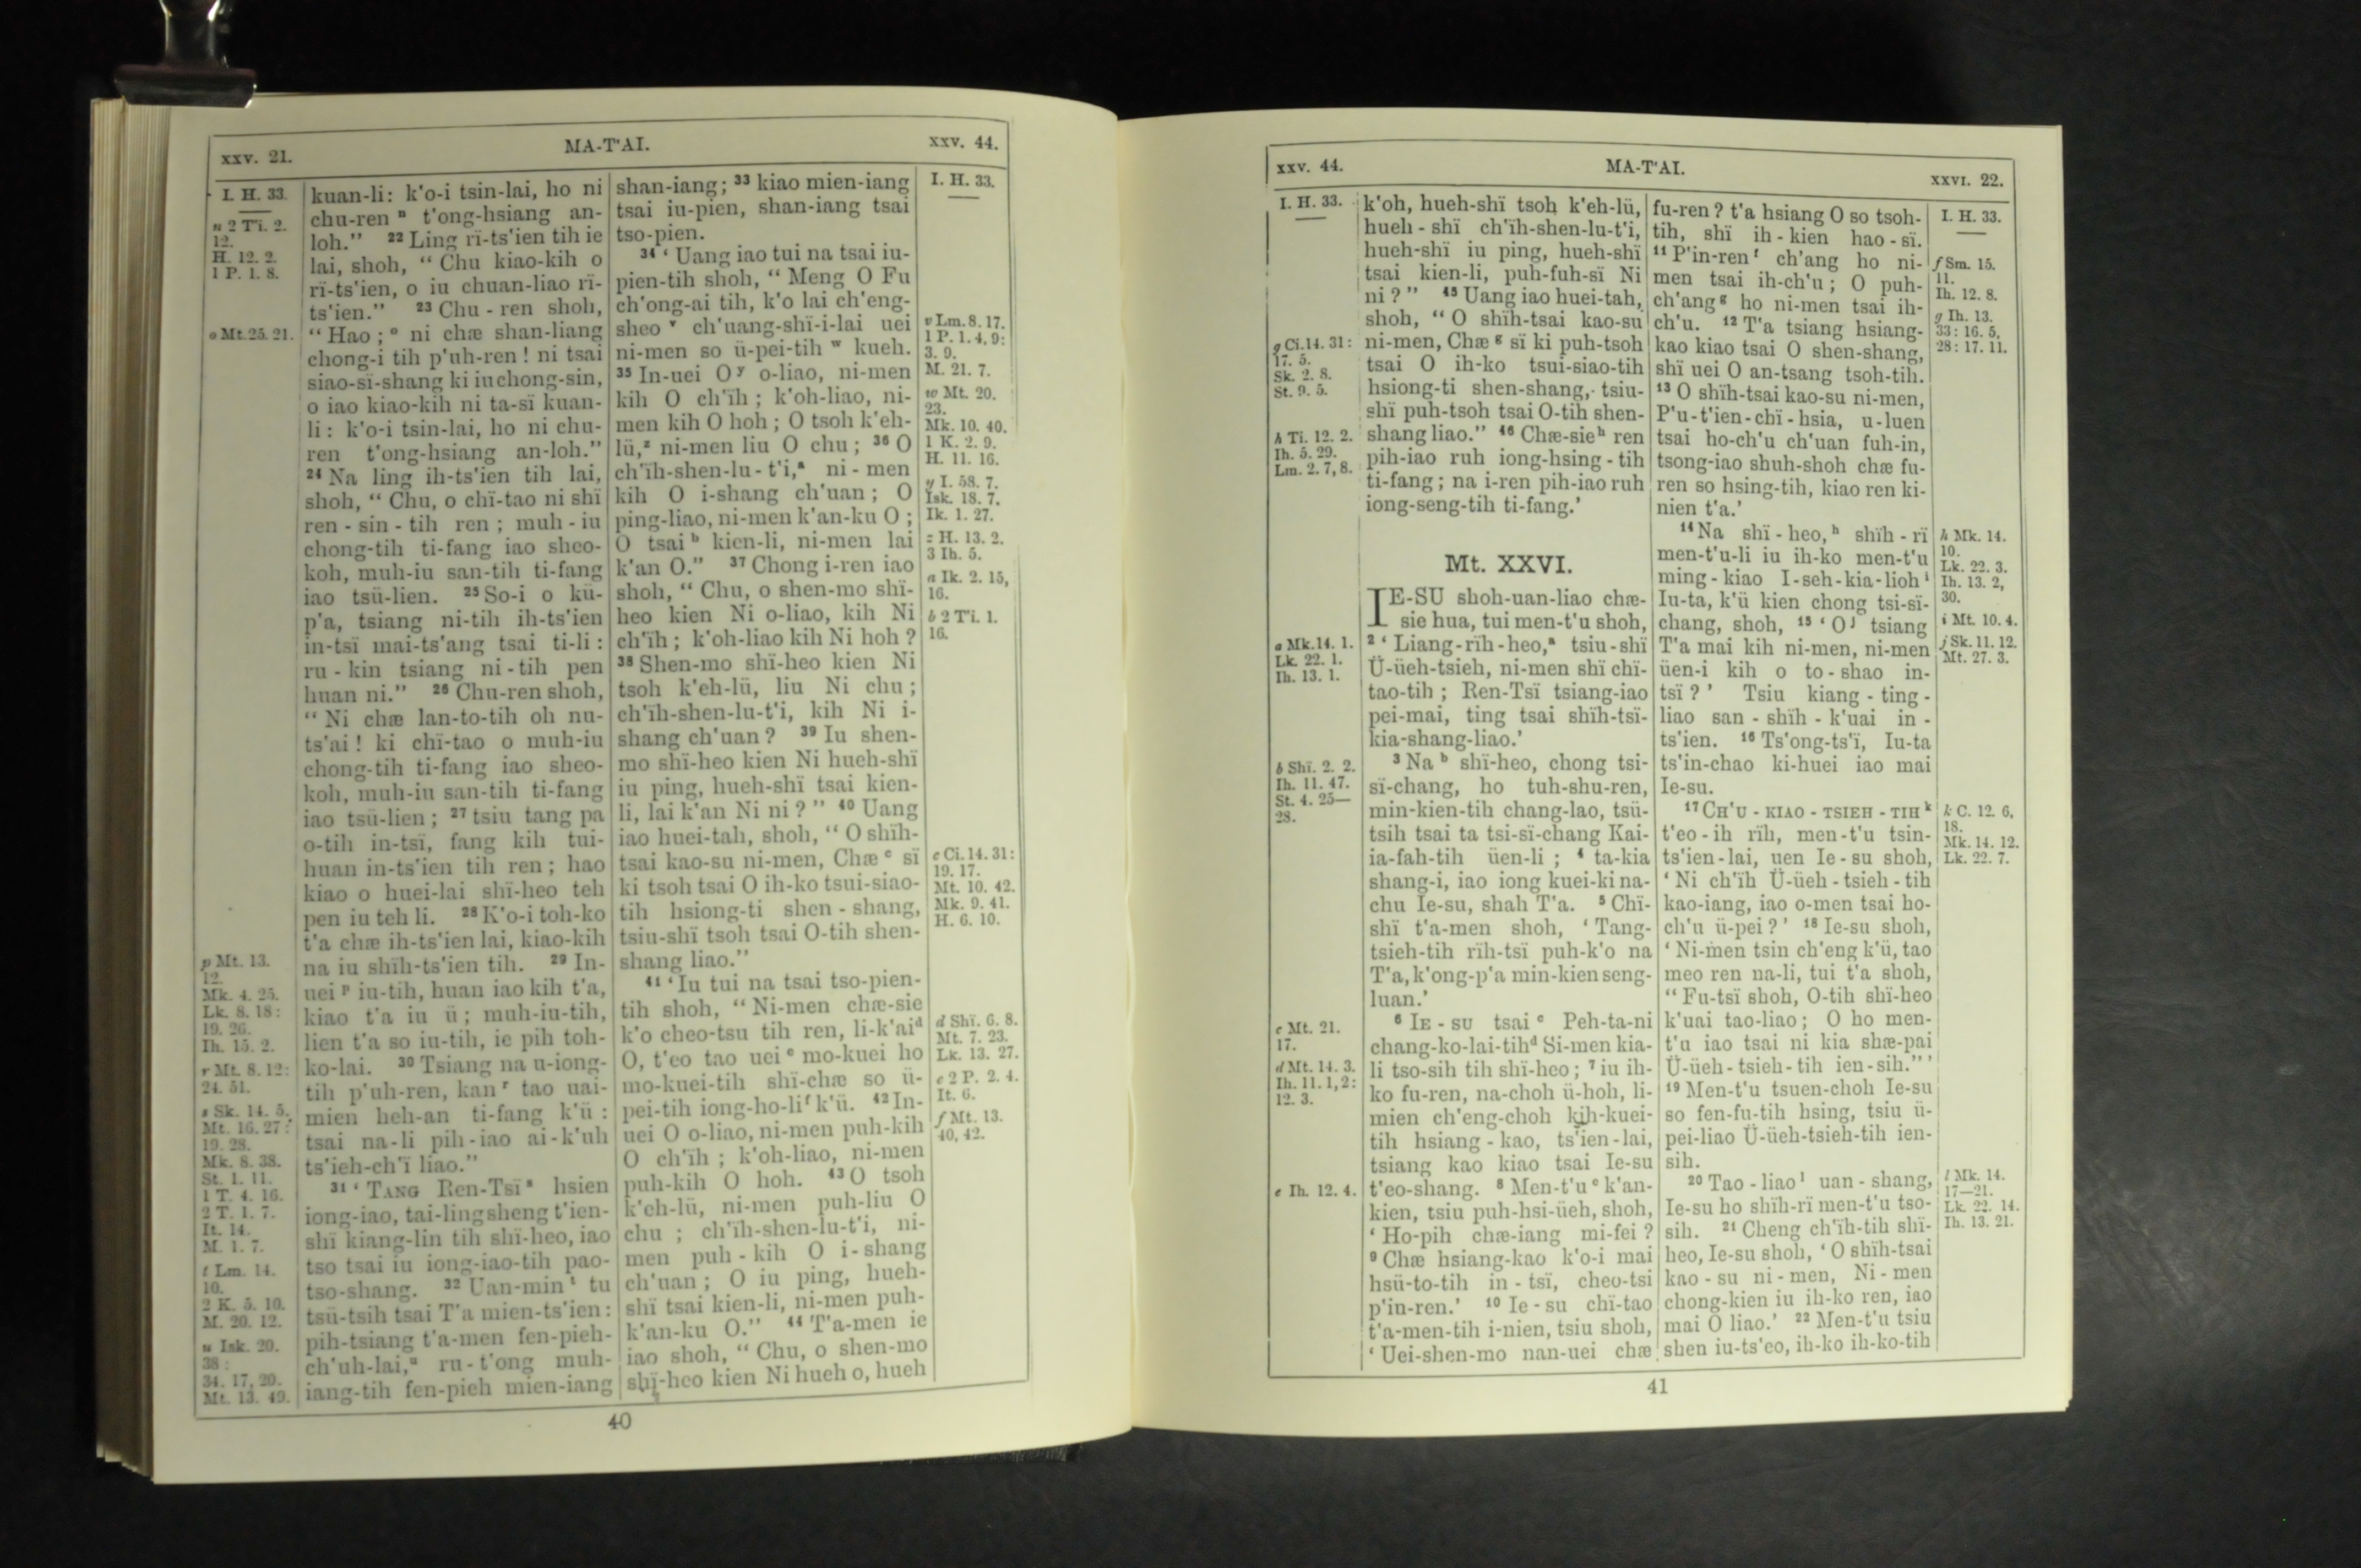 xxv. 21.
MA-T'AI.
xxv. 44.
I. H. 33.
n 2 Ti. 2.
12.
H. 12. 2.
1 P. 1. 8.
o Mt. 25. 21.
p Mt. 13.
12.
Mk. 4. 25.
Lk. 8. 18:
19. 26.
Ih. 15. 2.
r Mt. 8. 12:
24. 51.
s Sk. 14. 5.
Mt. 16. 27:
19. 28.
Mk. 8. 38.
St. 1. 11.
1 T. 4. 16.
2 T. 1. 7.
It. 14.
M. 1. 7.
t Lm. 14.
10.
2 K. 5. 10.
M. 20. 12.
u Isk. 20.
38:
34. 17, 20.
Mt. 13. 49.
kuan-li: k'o-i tsin-lai, ho ni
chu-ren n t'ong-hsiang an-
loh." 22 Ling rï-ts'ien tih ie
lai, shoh, "Chu kiao-kih o
rï-ts'ien, o iu chuan-liao rï-
ts'ien." 23 Chu-ren shoh,
"Hao; o ni chæ shan-liang
chong-i tih p'uh-ren! ni tsai
siao-sï-shang ki iu chong-sin,
o iao kiao-kih ni ta-sï kuan-
li: k'o-i tsin-lai, ho ni chu-
ren t'ong-hsiang an-loh."
24 Na ling ih-ts'ien tih lai,
shoh, "Chu, o chï-tao ni shï
ren-sin-tih ren; muh-iu
chong-tih ti-fang iao sheo-
koh, muh-iu san-tih ti-fang
iao tsü-lien. 25 So-i o kü-
p'a, tsiang ni-tih ih-ts'ien
in-tsï mai-ts'ang tsai ti-li:
ru-kin tsiang ni-tih pen
huan ni." 26 Chu-ren shoh,
"Ni chæ lan-to-tih oh nu-
ts'ai! ki chï-tao o muh-iu
chong-tih ti-fang iao sheo-
koh, muh-iu san-tih ti-fang
iao tsü-lien; 27 tsiu tang pa
o-tih in-tsï, fang kih tui-
huan in-ts'ien tih ren; hao
kiao o huei-lai shï-heo teh
pen iu teh li. 28 K'o-i toh-ko
t'a chæ ih-ts'ien lai, kiao-kih
na iu shïh-ts'ien tih. 29 In-
uei p iu-tih, huan iao kih t'a,
kiao t'a iu ü; muh-iu-tih,
lien t'a so iu-tih, ie pih toh-
ko-lai. 30 Tsiang na u-iong-
tih p'uh-ren, kan r tao uai-
mien heh-an ti-fang k'ü:
tsai na-li pih-iao ai-k'uh
ts'ieh-ch'ï liao."
31 'TANG Ren-Tsï s hsien
iong-iao, tai-ling sheng t'ien-
shï kiang-lin tih shï-heo, iao
tso tsai iu iong-iao-tih pao-
tso-shang. 32 Uan-min t tu
tsü-tsih tsai T'a mien-ts'ien:
pih-tsiang t'a-men fen-pieh-
ch'uh-lai, u ru-t'ong muh-
iang-tih fen-pieh mien-iang
shan-iang; 33 kiao mien-iang
tsai iu-pien, shan-iang tsai
tso-pien.
34 'Uang iao tui na tsai iu-
pien-tih shoh, "Meng O Fu
ch'ong-ai tih, k'o lai ch'eng-
sheo v ch'uang-shï-i-lai uei
ni-men so ü-pei-tih w kueh.
35 In-uei O y o-liao, ni-men
kih O ch'ïh; k'oh-liao, ni-
men kih O hoh; O tsoh k'eh-
lü, z ni-men liu O chu; 36 O
ch'ïh-shen-lu-t'i, a ni-men
kih O i-shang ch'uan; O
ping-liao, ni-men k'an-ku O;
O tsai b kien-li, ni-men lai
k'an O." 37 Chong i-ren iao
shoh, "Chu, o shen-mo shï-
heo kien Ni o-liao, kih Ni
ch'ïh; k'oh-liao kih Ni hoh?
38 Shen-mo shï-heo kien Ni
tsoh k'eh-lü, liu Ni chu;
ch'ïh-shen-lu-t'i, kih Ni i-
shang ch'uan? 39 Iu shen-
mo shï-heo kien Ni hueh-shï
iu ping, hueh-shï tsai kien-
li, lai k'an Ni ni?" 40 Uang
iao huei-tah, shoh, "O shïh-
tsai kao-su ni-men, Chæ c sï
ki tsoh tsai O ih-ko tsui-siao-
tih hsiong-ti shen-shang,
tsiu-shï tsoh tsai O-tih shen-
shang liao."
41 'Iu tui na tsai tso-pien-
tih shoh, "Ni-men chæ-sie
k'o cheo-tsu tih ren, li-k'ai d
O, t'eo tao uei e mo-kuei ho
mo-kuei-tih shï-chæ so ü-
pei-tih iong-ho-li f k'ü. 42 In-
uei O o-liao, ni-men puh-kih
O ch'ïh; k'oh-liao, ni-men
puh-kih O hoh. 43 O tsoh
k'eh-lü, ni-men puh-liu O
chu; ch'ïh-shen-lu-t'i, ni-
men puh-kih O i-shang
ch'uan; O iu ping, hueh-
shï tsai kien-li, ni-men puh-
k'an-ku O." 44 T'a-men ie
iao shoh, "Chu, o shen-mo
shï-heo kien Ni hueh o, hueh
I. H. 33.
v Lm. 8. 17.
1 P. 1. 4, 9:
3. 9.
M. 21. 7.
w Mt. 20.
23.
Mk. 10. 40.
1 K. 2. 9.
H. 11. 16.
y I. 58. 7.
Isk. 18. 7.
Ik. 1. 27.
z H. 13. 2.
3 Ih. 5.
a Ik. 2. 15,
16.
b 2 Ti. 1.
16.
c Ci. 14. 31:
19. 17.
Mt. 10. 42.
Mk. 9. 41.
H. 6. 10.
d Shï. 6. 8.
Mt. 7. 23.
Lk. 13. 27.
e 2 P. 2. 4.
It. 6.
f Mt. 13.
40, 42.
40
xxv. 44.
MA-T'AI.
xxvi. 22.
I. H. 33.
g Ci. 14. 31:
17. 5.
Sk. 2. 8.
St. 9. 5.
h Ti. 12. 2.
Ih. 5. 29.
Lm. 2. 7, 8.
a Mk. 14. 1.
Lk. 22. 1.
Ih. 13. 1.
b Shï. 2. 2.
Ih. 11. 47.
St. 4. 25—
28.
c Mt. 21.
17.
d Mt. 14. 3.
Ih. 11. 1, 2:
12. 3.
e Ih. 12. 4.
k'oh, hueh-shï tsoh k'eh-lü,
hueh-shï ch'ïh-shen-lu-t'i,
hueh-shï iu ping, hueh-shï
tsai kien-li, puh-fuh-sï Ni
ni?" 45 Uang iao huei-tah,
shoh, "O shïh-tsai kao-su
ni-men, Chæ g sï ki puh-tsoh
tsai O ih-ko tsui-siao-tih
hsiong-ti shen-shang, tsiu-
shï puh-tsoh tsai O-tih shen-
shang liao." 46 Chæ-sie h ren
pih-iao ruh iong-hsing-tih
ti-fang; na i-ren pih-iao ruh
iong-seng-tih ti-fang.'
Mt. XXVI.
IE-SU shoh-uan-liao chæ-
sie hua, tui men-t'u shoh,
2 'Liang-rïh-heo, a tsiu-shï
Ü-üeh-tsieh, ni-men shï chï-
tao-tih; Ren-Tsï tsiang-iao
pei-mai, ting tsai shïh-tsï-
kia-shang-liao.'
3 Na b shï-heo, chong tsi-
sï-chang, ho tuh-shu-ren,
min-kien-tih chang-lao, tsü-
tsih tsai ta tsi-sï-chang Kai-
ia-fah-tih üen-li; 4 ta-kia
shang-i, iao iong kuei-ki na-
chu Ie-su, shah T'a. 5 Chï-
shï t'a-men shoh, 'Tang-
tsieh-tih rïh-tsï puh-k'o na
T'a, k'ong-p'a min-kien seng-
luan.'
6 IE-SU tsai c Peh-ta-ni
chang-ko-lai-tih d Si-men kia-
li tso-sih tih shï-heo; 7 iu ih-
ko fu-ren, na-choh ü-hoh, li-
mien ch'eng-choh kih-kuei-
tih hsiang-kao, ts'ien-lai,
tsiang kao kiao tsai Ie-su
t'eo-shang. 8 Men-t'u e k'an-
kien, tsiu puh-hsi-üeh, shoh,
'Ho-pih chæ-iang mi-fei?
9 Chæ hsiang-kao k'o-i mai
hsü-to-tih in-tsï, cheo-tsi
p'in-ren.' 10 Ie-su chï-tao
t'a-men-tih i-nien, tsiu shoh,
'Uei-shen-mo nan-uei chæ
fu-ren? t'a hsiang O so tsoh-
tih, shï ih-kien hao-sï.
11 P'in-ren f ch'ang ho ni-
men tsai ih-ch'u; O puh-
ch'ang g ho ni-men tsai ih-
ch'u. 12 T'a tsiang hsiang-
kao kiao tsai O shen-shang,
shï uei O an-tsang tsoh-tih.
13 O shïh-tsai kao-su ni-men,
P'u-t'ien-chï-hsia, u-luen
tsai ho-ch'u ch'uan fuh-in,
tsong-iao shuh-shoh chæ fu-
ren so hsing-tih, kiao ren ki-
nien t'a.'
14 Na shï-heo, h shïh-rï
men-t'u-li iu ih-ko men-t'u
ming-kiao I-seh-kia-lioh i
Iu-ta, k'ü kien chong tsi-sï-
chang, shoh, 15 'O j tsiang
T'a mai kih ni-men, ni-men
üen-i kih o to-shao in-
tsï?' Tsiu kiang-ting-
liao san-shïh-k'uai in-
ts'ien. 16 Ts'ong-ts'ï, Iu-ta
ts'in-chao ki-huei iao mai
Ie-su.
17 CH'U-KIAO-TSIEH-TIH k
t'eo-ih rïh, men-t'u tsin-
ts'ien-lai, uen Ie-su shoh,
'Ni ch'ïh Ü-üeh-tsieh-tih
kao-iang, iao o-men tsai ho-
ch'u ü-pei?' 18 Ie-su shoh,
'Ni-men tsin ch'eng k'ü, tao
meo ren na-li, tui t'a shoh,
"Fu-tsï shoh, O-tih shï-heo
k'uai tao-liao; O ho men-
t'u iao tsai ni kia shæ-pai
Ü-üeh-tsieh-tih ien-sih."'
19 Men-t'u tsuen-choh Ie-su
so fen-fu-tih hsing, tsiu ü-
pei-liao Ü-üeh-tsieh-tih ien-
sih.
20 Tao-liao l uan-shang,
Ie-su ho shïh-rï men-t'u tso-
sih. 21 Cheng ch'ïh-tih shï-
heo, Ie-su shoh, 'O shïh-tsai
kao-su ni-men, Ni-men
chong-kien iu ih-ko ren, iao
mai O liao.' 22 Men-t'u tsiu
shen iu-ts'eo, ih-ko ih-ko-tih
I. H. 33.
f Sm. 15.
11.
Ih. 12. 8.
g Ih. 13.
33: 16. 5,
28: 17. 11.
h Mk. 14.
10.
Lk. 22. 3.
Ih. 13. 2,
30.
i Mt. 10. 4.
j Sk. 11. 12.
Mt. 27. 3.
k C. 12. 6,
18.
Mk. 14. 12.
Lk. 22. 7.
l Mk. 14.
17—21.
Lk. 22. 14.
Ih. 13. 21.
41